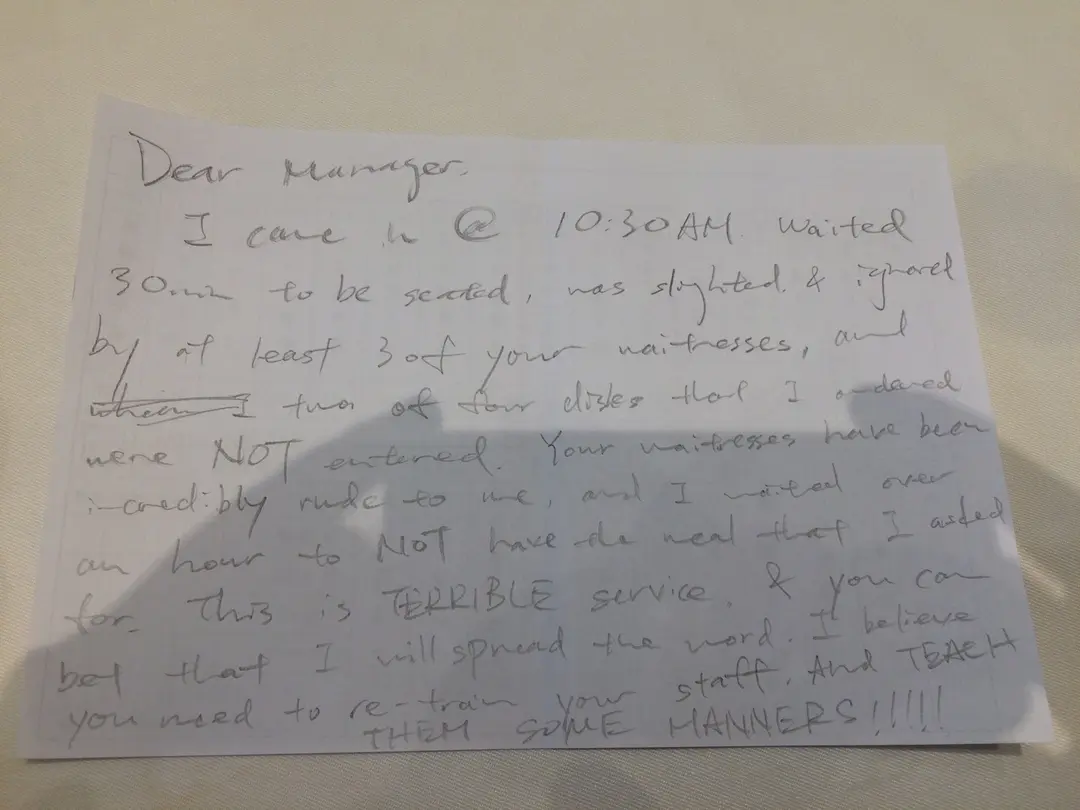 Dear Manager.
I came in @ 10:30AM. Waited
30min to be seated, was slighted & ignored
by at least 3 of your waitresses, and
when I two of four dishes that I ordered
were NOT entered. Your waitresses have been
incredibly rude to me, and I waited over
an hour to NOT have the meal that I asked
for. This is TERRIBLE service, & you can
bet that I will spread the word. I believe
you need to re-train your staff. And TEACH
THEM SOME MANNERS!!!!!